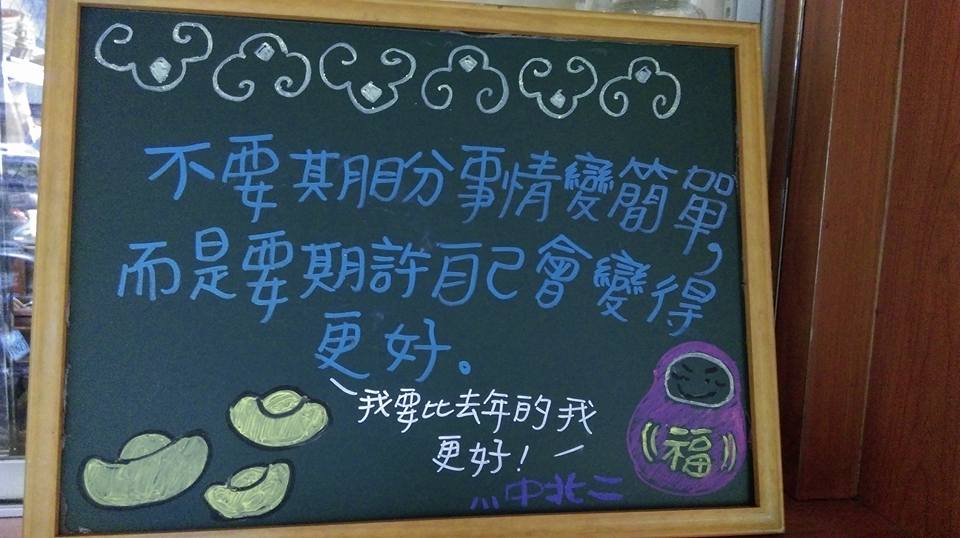 不要期盼事情變簡單，
而是要期許自己會變得
更好。
我要比去年的我
更好！
福
中北二